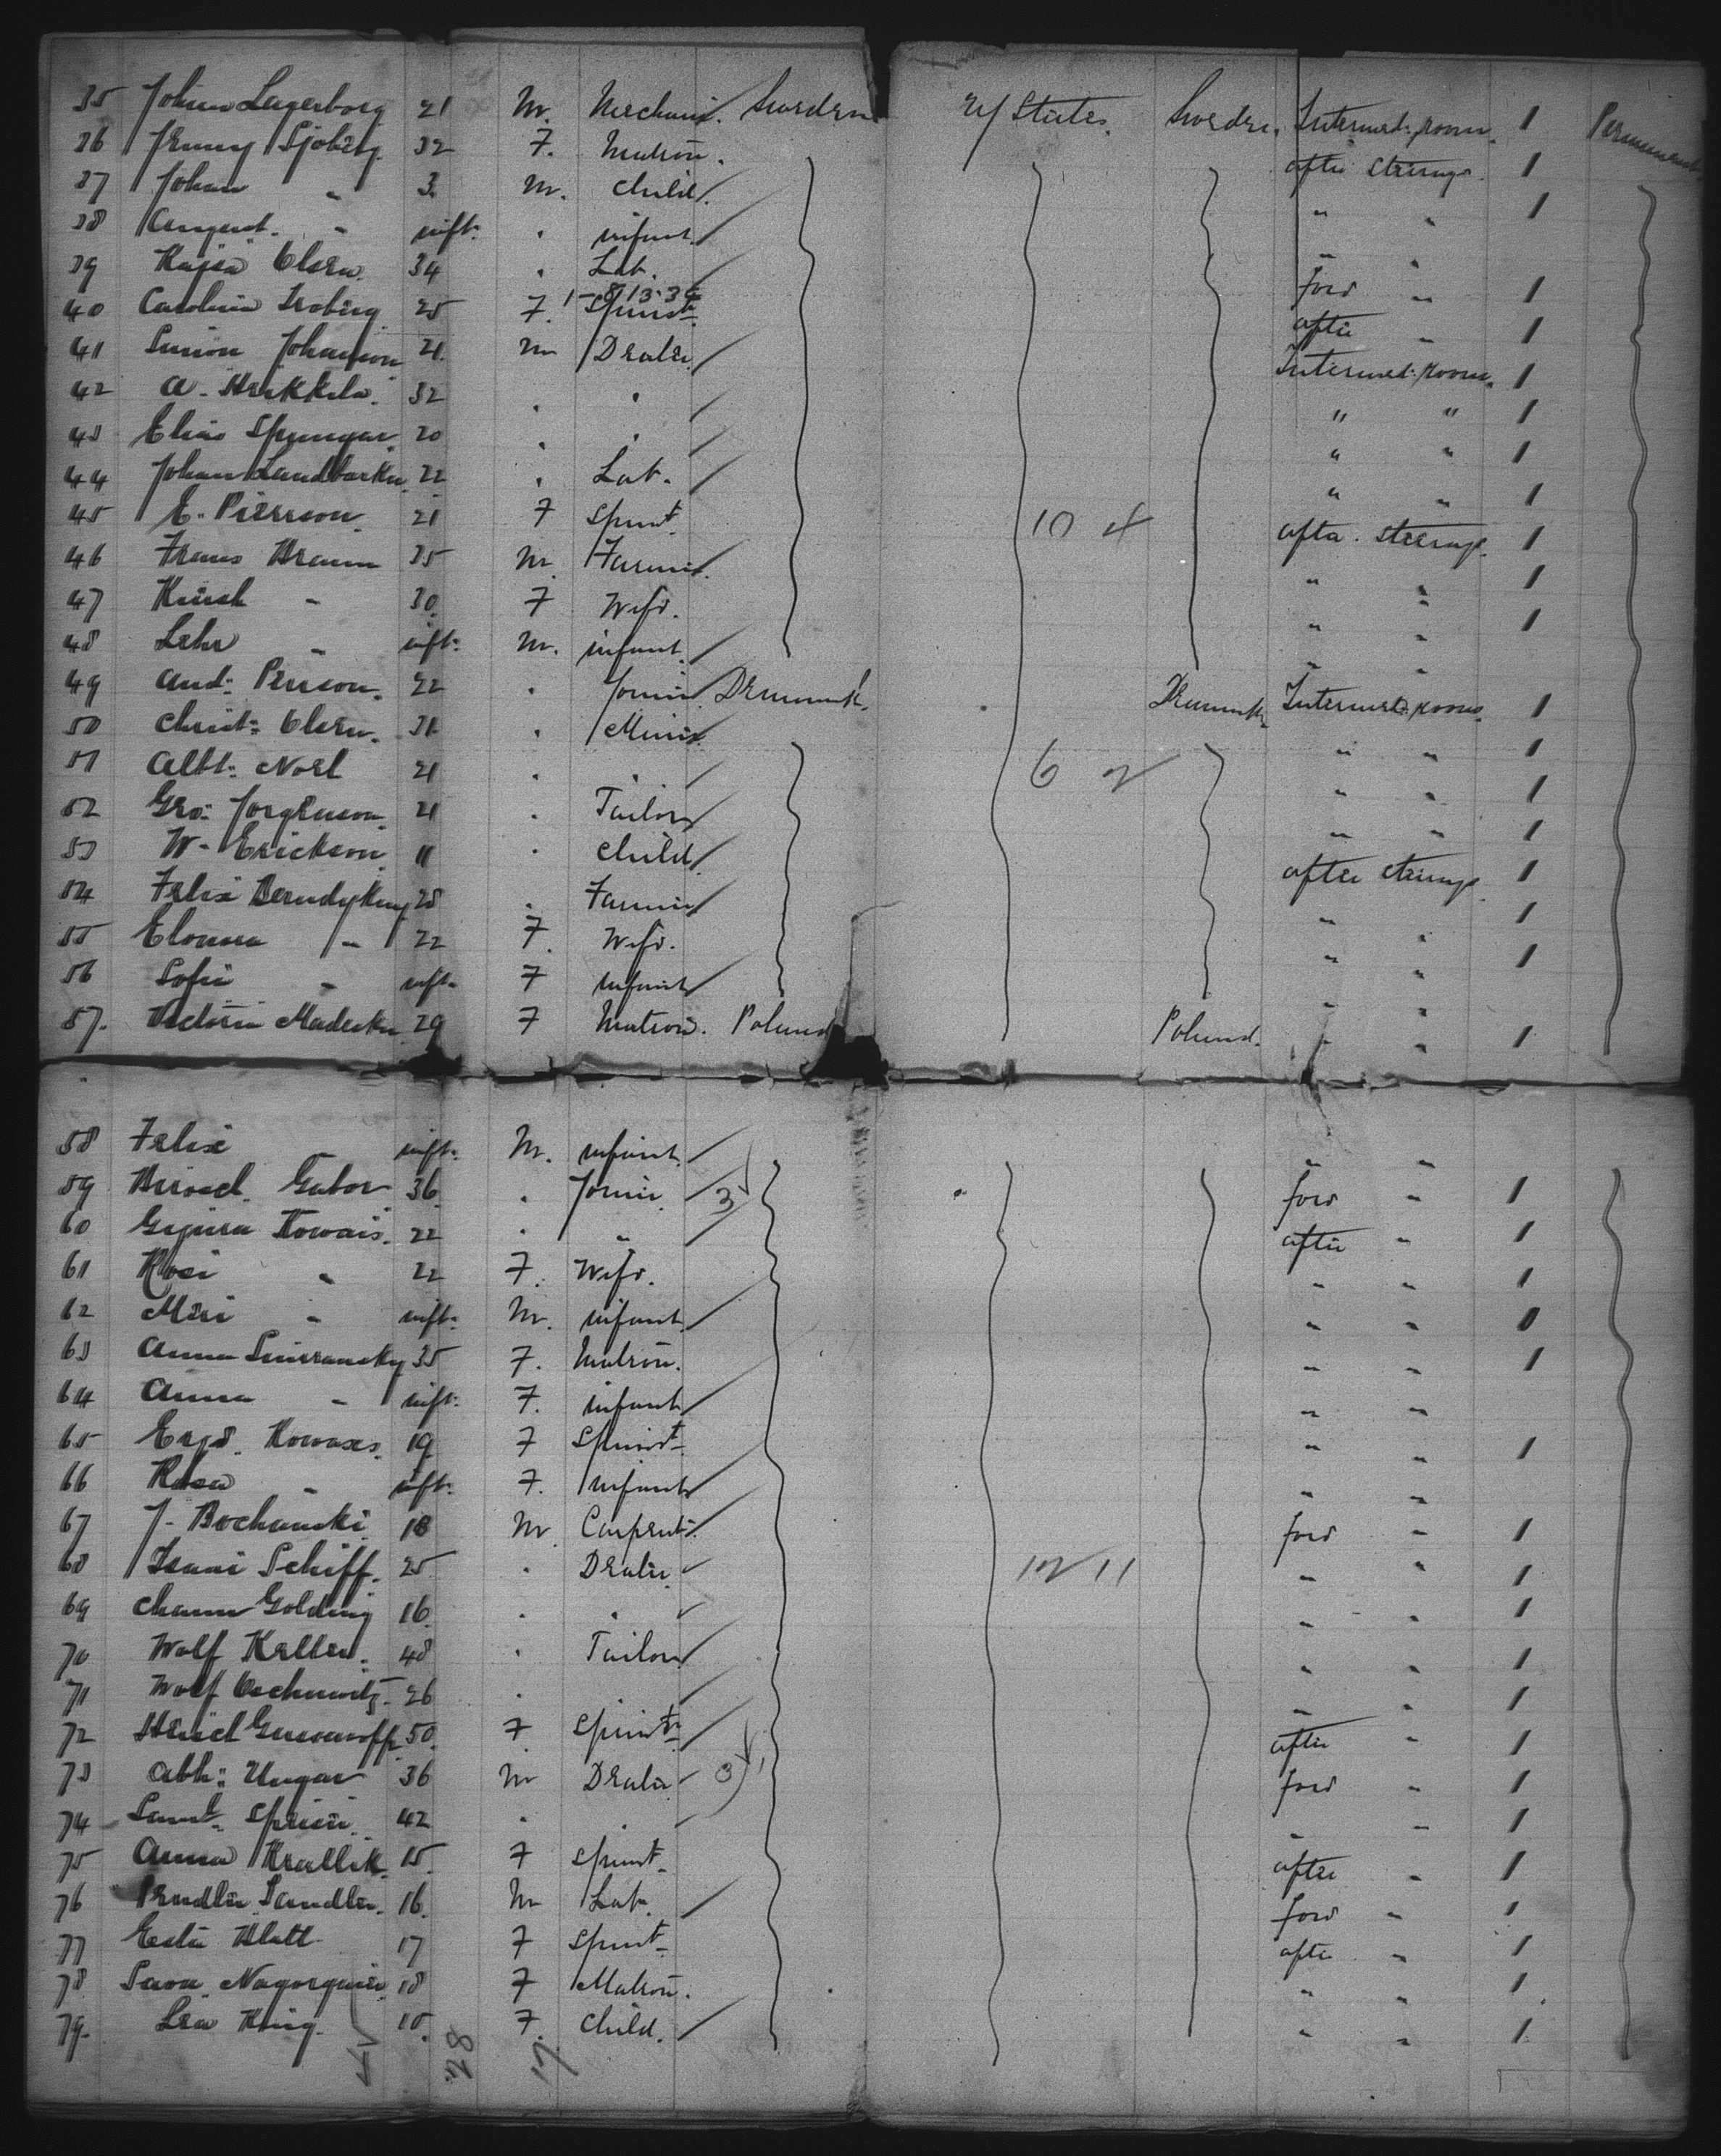 35 Johan Lagerborg 21 M. Mechanic. Sweden U/States. Sweden. Intermed: room. 1 Permanent
36 Jenny Sjoberg. 32 F. Matron. after steerage. 1
37 Johan " 3. M. child. " " 1
38 August. " inft: " infant. " "
39 Kajsa Olsen. 34 " Lab. forw " 1
40 Carolina Iroberg 25 F. Spinst. after " 1
41 Simon Johanson 21. M Dealer. Intermed: room. 1
42 A. Heikkela. 32 " " " " 1
43 Elias Spungar. 20 " " " " 1
44 Johan Landbacka 22 " Lab. " " 1
45 E. Pierson 21 F Spinst. 10 4 after steerage. 1
46 Frans Braun 35 M. Farmer. " " 1
47 " 30. F Wife. " " 1
48 " inft: M. infant. " "
49 And: Person. 22 " Joiner. Denmark. " Denmark. Intermed: room. 1
50 Christ: Olsen. 31 " Miner. " " 1
51 Albt: Noel 21 " " 6 2 " " 1
52 Geo: Jorgenson. 21 " Tailor " " 1
53 W. Erickson 11 " child after steerage 1
54 Felix 28 " Farmer " " 1
55 Elonora " 22 F. Wife. " " 1
56 Sofie " inft. F infant " "
57. Victoria Madecka 29 F Matron. Poland Poland. " " 1
58 Felix " inft: M. infant. " "
59 Gabor 36 " Joiner. 3 " forw " 1
60 Kowais. 22 " " after " 1
61 Rosi " 22 F. Wife. " " 1
62 Miri " inft: M. infant. " " 0
63 Anna 35 F. Matron. " " 1
64 Anna " inft: F. infant " "
65 19 F Spinst. " " 1
66 Rosa " inft: F. infant " "
67 J. Bochanski 18 M. Carpent. forw " 1
68 Isaac Schiff. 25 " Dealer. 12 11 " " 1
69 Golding 16. " " " " 1
70 Wolf Keller. 48 " Tailor " " 1
71 Wolf 26 " " " 1
72 50. F Spinst. after " 1
73 Abh: Ungar 36 M Dealer 3 forw " 1
74 Saml. 42 " " " " 1
75 Anna Krallik 15. F Spinst. after " 1
76 Sandler. 16. M Lab. forw " 1
77 Blatt 17 F Spinst. after " 1
78 18 F Matron. " " 1
79. Lea King. 10. F. Child. " " 1